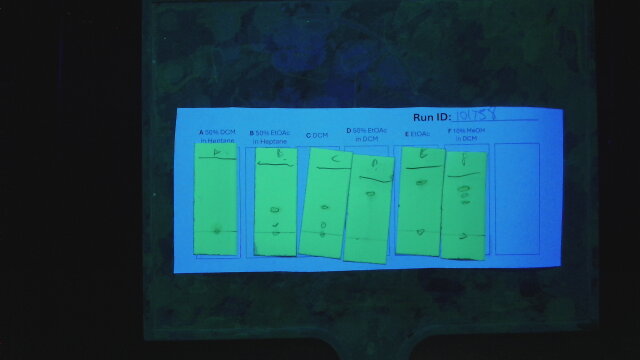 Run ID: 101758
A 50% DCM
in Heptane
B 50% EtOAc
in Heptane
C DCM
D 50% EtOAc
in DCM
E EtOAc
F 10% MeOH
in DCM
A
B
C
D
E
F